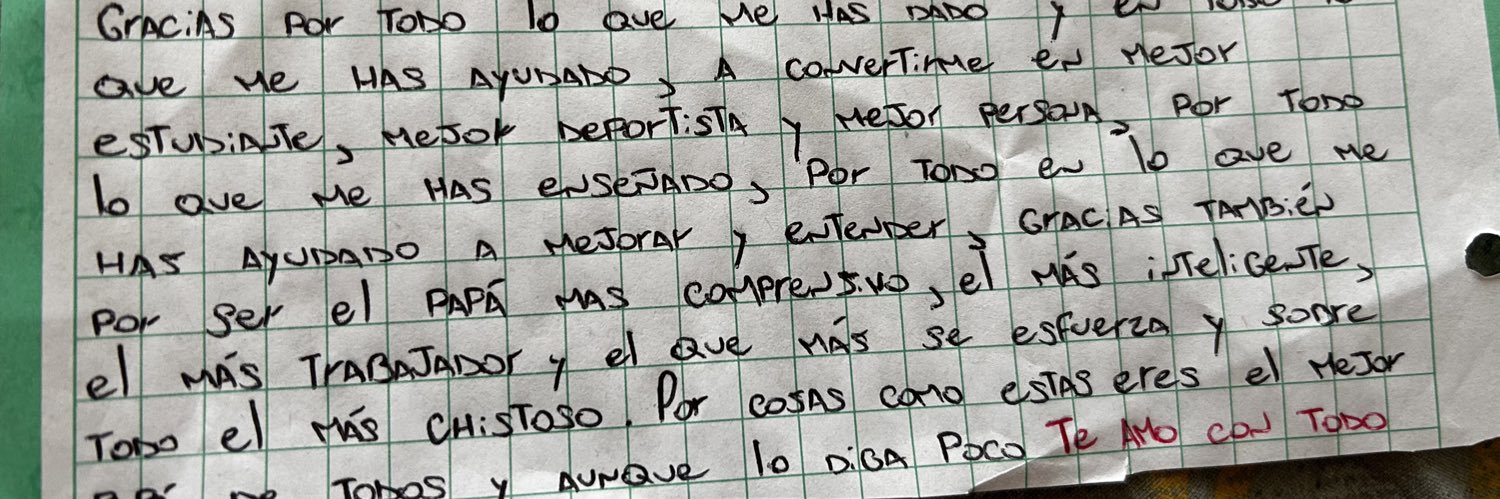 GRACIAS POR TODO lo QUE Me HAS DADO y eN TODO lo
QUE Me HAS AYUDADO, A CONVERTIRME eN MeJor
esTUDIANTe, MeJOR DePORTISTA y MeJor PersONA, Por TODO
lo QUE Me HAS eNSeÑADO, Por TODO eN lo QUE Me
HAS AYUDADO A MeJORAr y eNTeNDer, GrACIAS TAMBiéN
Por Ser el PAPÁ MAS COMPreNSIVO, el MÁS iNTeliGeNTe,
el MÁS TrABAJADOr y el QUE MÁS Se esfuerzA y SOBre
TODO el MÁS CHiSTOSO. Por COSAS COMO eSTAS eres el MeJor
De TODOS y AUNQUE lo DIGA POCO Te AMO CON TODO